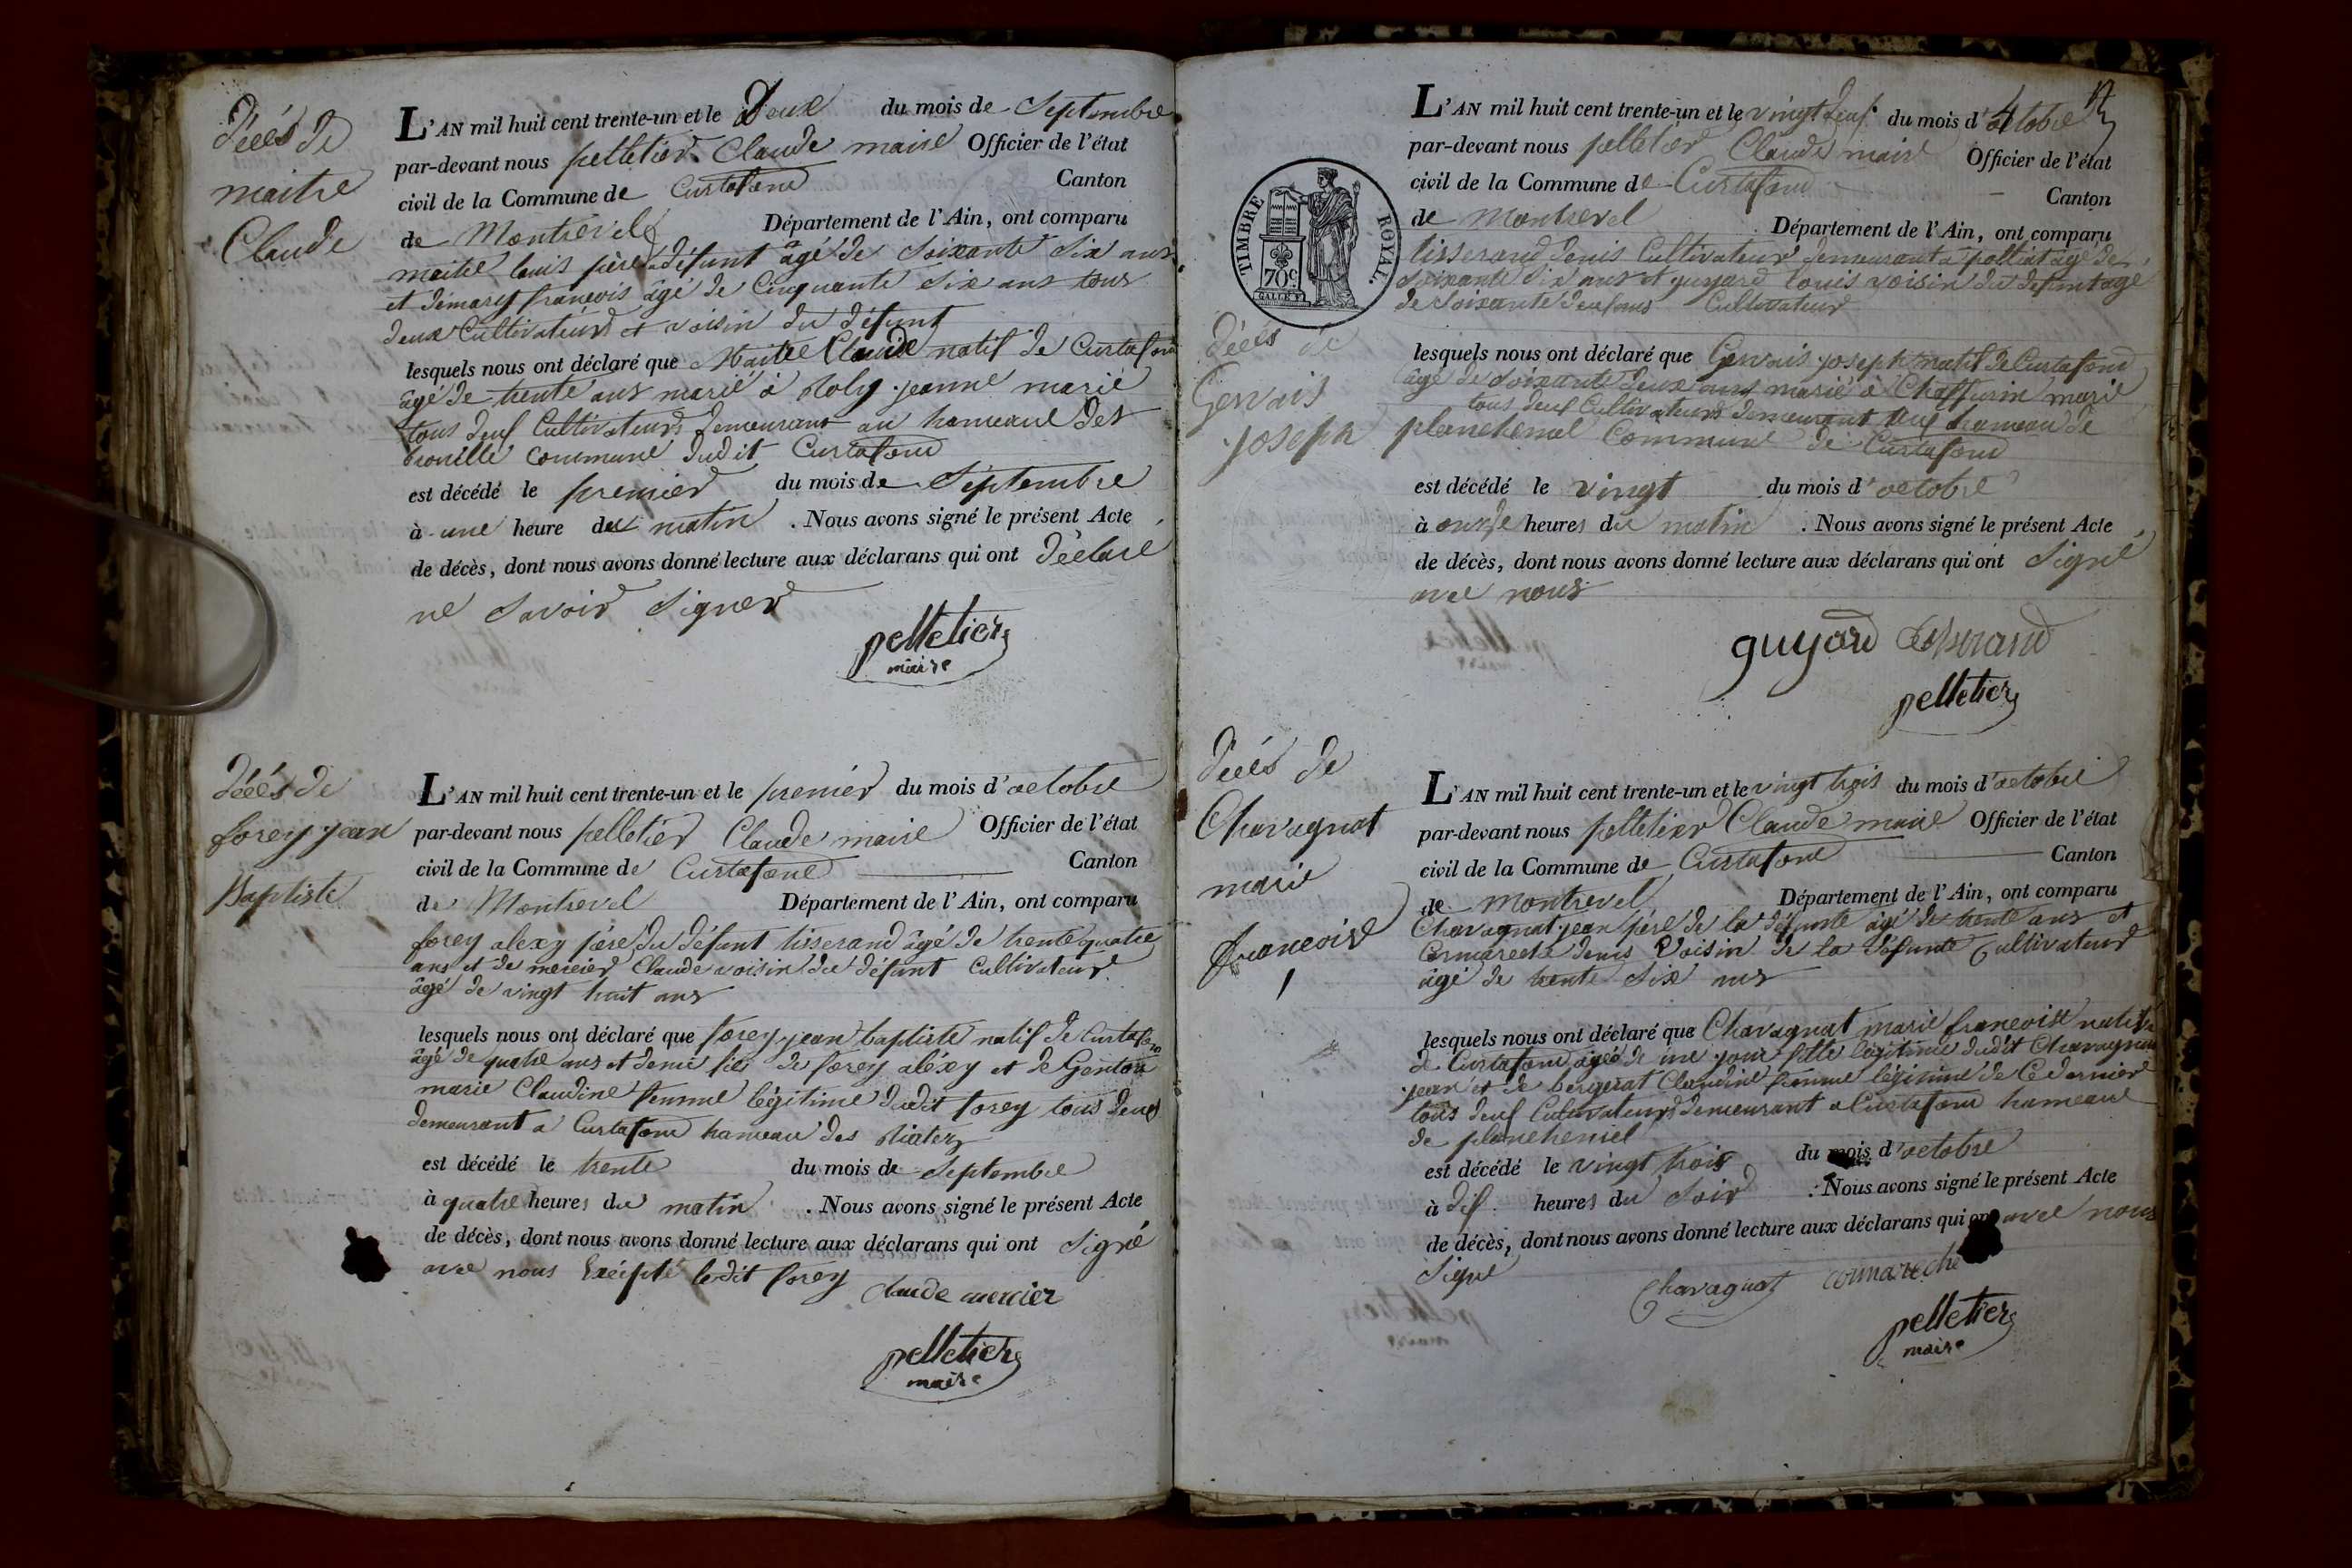 décés de
maitre
Claude
L'AN mil huit cent trente-un et le Deux du mois de Septembre
par-devant nous pelletier Claude maire Officier de l'état
civil de la Commune de Curtafond Canton
de Montrevel Département de l'Ain, ont comparu
maitre louis père défunt âgé de Soixante Six ans
et démarey françois âgé de Cinquante Six ans tous
deux Cultivateurs et voisin du défunt
lesquels nous ont déclaré que Maitre Claude natif de Curtafond
âgé de trente ans marié à Roly jeanne marie
tous deux Cultivateurs demeurant au hameau des
brouille commune dudit Curtafond
est décédé le premier du mois de Septembre
à une heure du matin . Nous avons signé le présent Acte
de décès, dont nous avons donné lecture aux déclarans qui ont déclaré
ne Savoir Signer
pelletier
maire
décés de
forey jean
Baptiste
L'AN mil huit cent trente-un et le premier du mois d'octobre
par-devant nous pelletier Claude maire Officier de l'état
civil de la Commune de Curtafond Canton
de Montrevel Département de l'Ain, ont comparu
forey alexy père du défunt tisserand âgé de trente quatre
ans et de mercier Claude voisin du défunt Cultivateur
âgé de vingt huit ans
lesquels nous ont déclaré que forey jean baptiste natif de Curtafond
âgé de quatre ans et demi fils de forey aléxy et de Genton
marie Claudine femme légitime dudit forey tous deux
demeurant a Curtafond hameau des
est décédé le trente du mois de Septembre
à quatre heures du matin . Nous avons signé le présent Acte
de décès, dont nous avons donné lecture aux déclarans qui ont Signé
avec nous Excépté ledit forey
Claude mercier
pelletier
maire
L'AN mil huit cent trente-un et le vingt deux du mois d'octobre
par-devant nous pelletier Claude maire Officier de l'état
civil de la Commune de Curtafond Canton
de Montrevel Département de l'Ain, ont comparu
TIMBRE ROYAL.
70c
tisserand denis Cultivateur demeurant a polliat âgé de
Soixante Six ans et guyard louis voisin du defunt agé
de Soixante deux ans Cultivateur
décés de
Gervais
joseph
lesquels nous ont déclaré que Gervais joseph natif de Curtafond
âgé de Soixante deux ans marié à Chaffurin marie
tous deux Cultivateurs demeurant hameau de
planchemel Commune de Curtafond
est décédé le vingt du mois d'octobre
à onze heures du matin . Nous avons signé le présent Acte
de décès, dont nous avons donné lecture aux déclarans qui ont Signé
avec nous
guyard tisserand
pelletier
décés de
Chavagnat
marie
francoise
L'AN mil huit cent trente-un et le vingt trois du mois d'octobre
par-devant nous pelletier Claude maire Officier de l'état
civil de la Commune de Curtafond Canton
de Montrevel Département de l'Ain, ont comparu
Chavagnat jean père de la défunte âgé de trente ans et
Cormareche denis Voisin de la défunte Cultivateur
âgé de trente Six ans
lesquels nous ont déclaré que Chavagnat marie francoise native
de Curtafond âgée de une jour fille légitime dudit Chavagnat
jean et de bergerat Claudine femme légitime de Ce dernier
tous deux Cultivateurs demeurant a Curtafond hameau
de planchemel
est décédé le vingt trois du mois d'octobre
à dix heures du Soir . Nous avons signé le présent Acte
de décès, dont nous avons donné lecture aux déclarans qui ont avec nous
Signé
Chavagnat cormareche
pelletier
maire